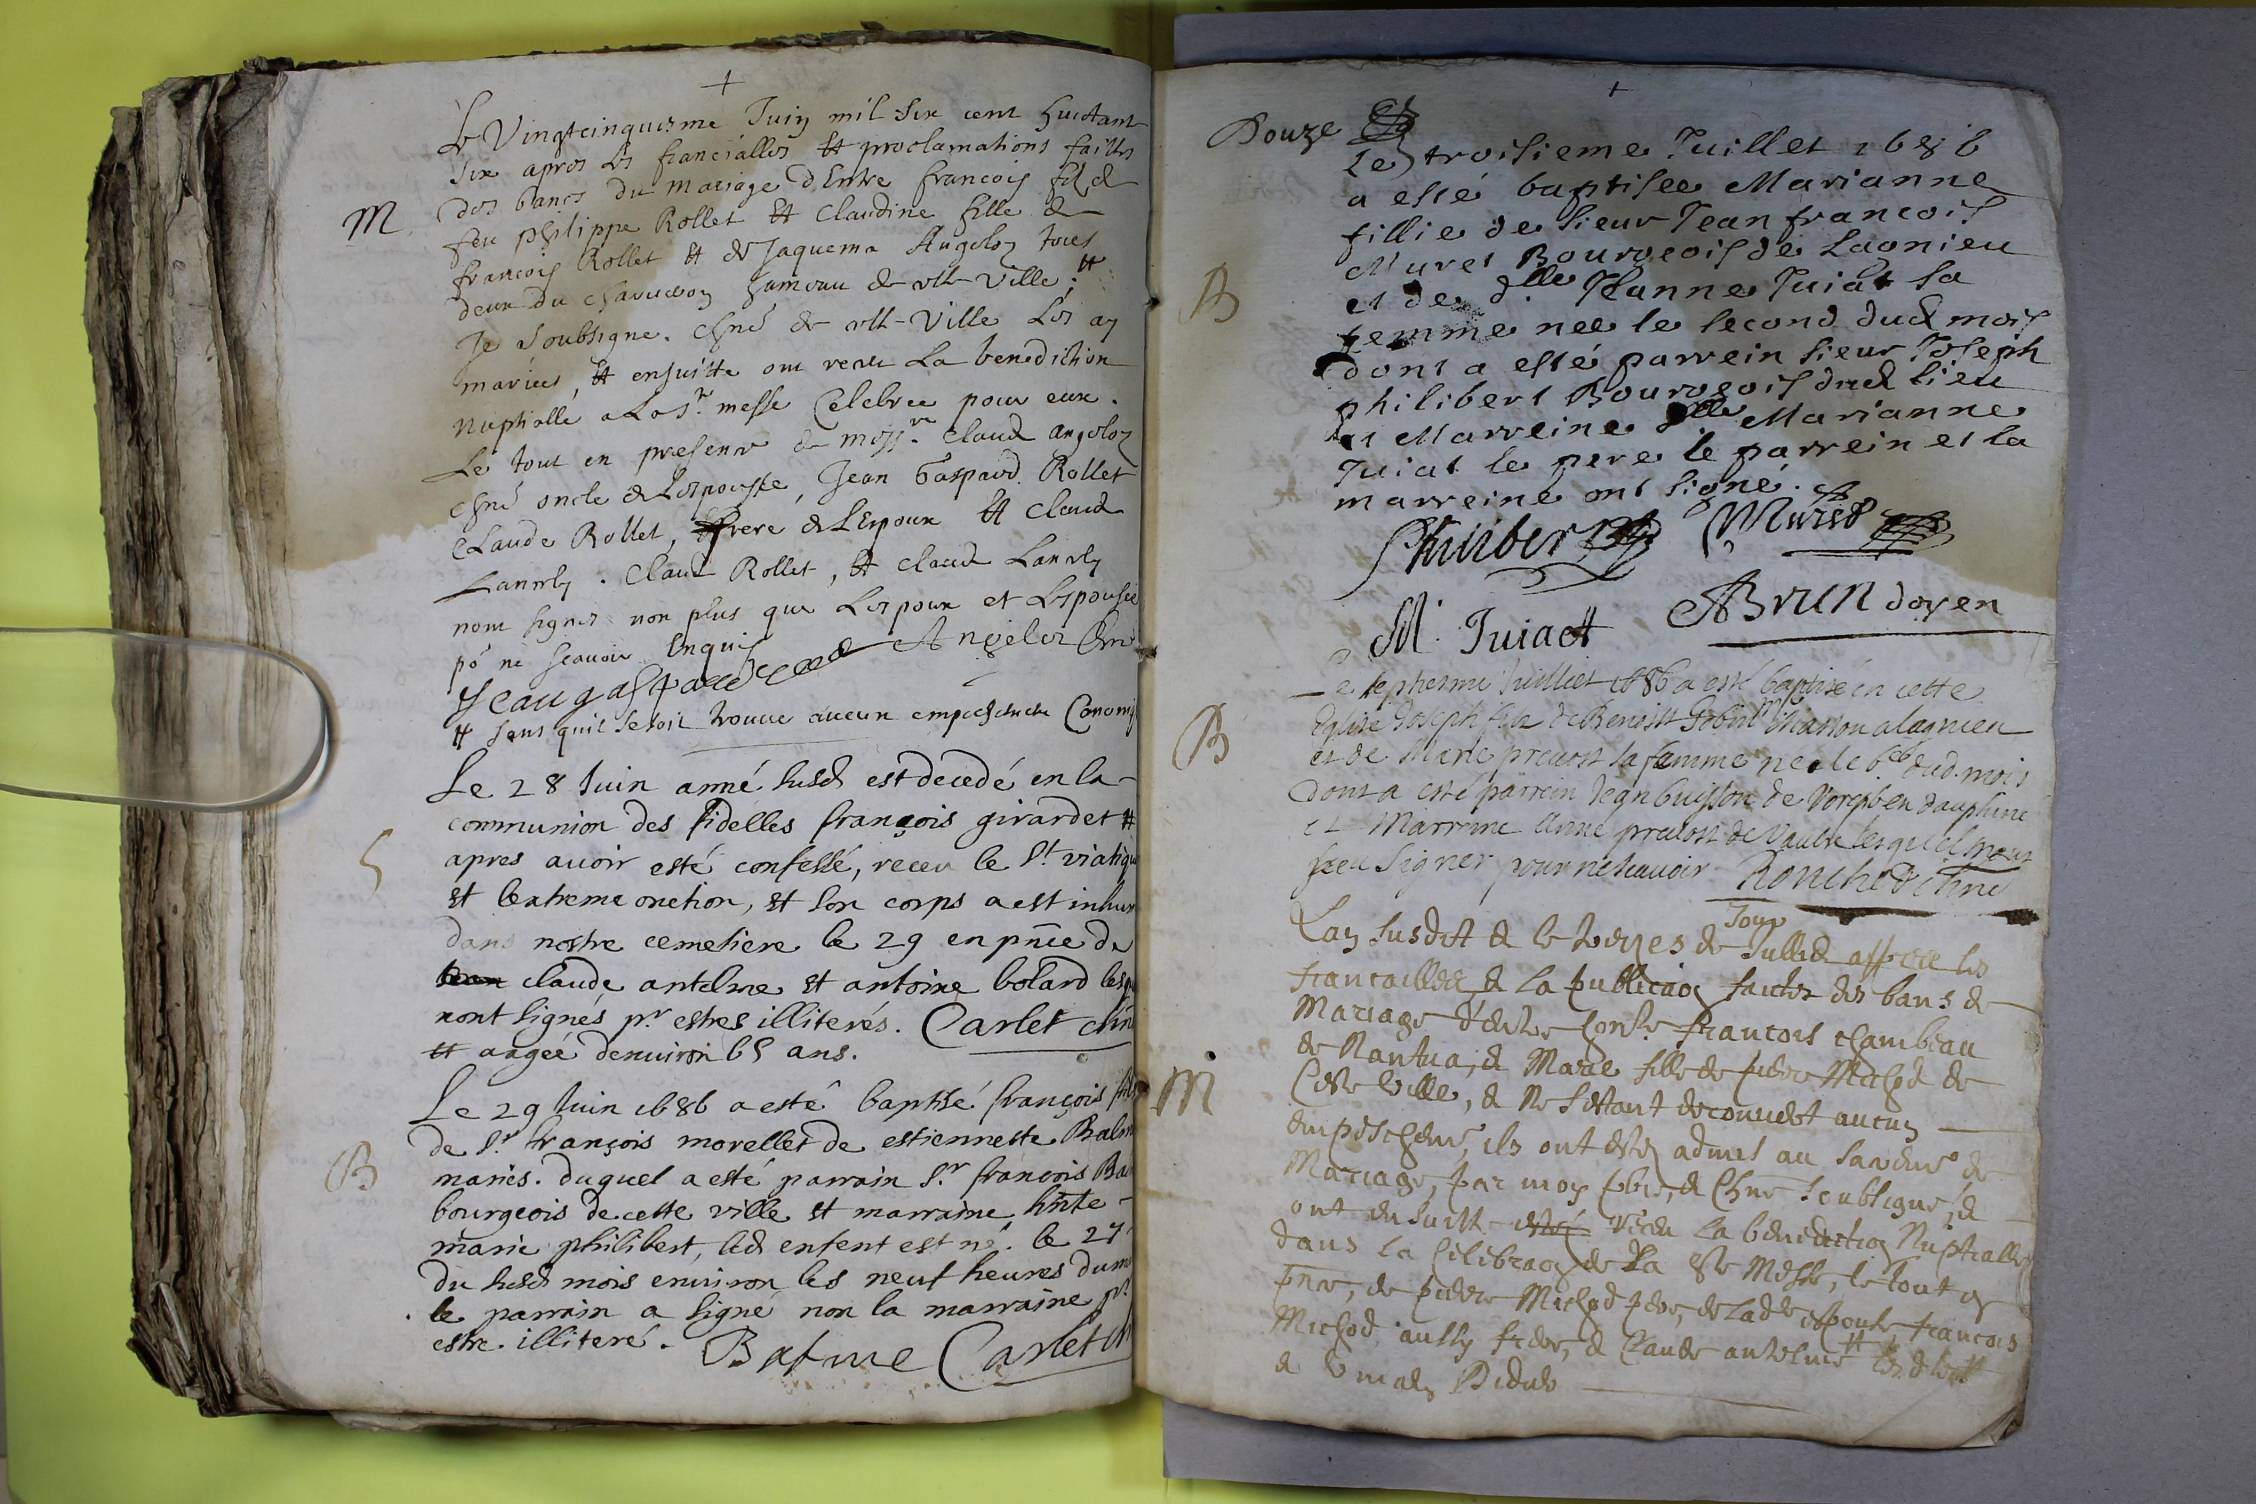 Le Vingtcinquiesme Juin mil six cent huictant
six apres les fiancialles et proclamations faittes
des bancs du mariage d'Entre francois fils de
M
feu philippe Rollet et Claudine fille de
francois Rollet et de Jaquema Angeloz tous
deux du hameau de Ville; #
Je soubsigne. chne de Ville Les ay
mariés, et ensuitte ont receu La benediction
nuptialle a La Ste messe Celebree pour eux.
Le tout en presence de messr. Claude angeloz
chne oncle de Lespouse, Jean Gaspard Rollet
Claude Rollet, frere de L'Espoux et Claude
Claude Rollet, et claude
nont signes non plus que Lespoux et Lespouse
po ne scavoir Enquis
Jean gaspard Angeloz Chne
# sans quil se soit trouvé aucun empeschement Canoniq
Le 28 Juin anné susd est decedé en la
communion des fidelles françois girardet #
S
apres avoir esté confessé, receu le St. viatique
et lextreme onction, et son corps a est inhum
dans nostre cemetiere le 29 en pnce de
claude antelme et antoine bolard lesq
nont signés pr. estres illiterés. Carlet chne
# aagée denviron 65 ans.
Le 29 Juin 1686 a esté baptisé françois fils
de Sr. françois morellet de estiennette Balm
B
mariés. duquel a esté parrain Sr. françois Bal
bourgeois de cette ville et marraine
marie philibert, led enfent est né. le 27
du susd mois environ les neuf heures du m
le parrain a signé non la marraine pr
estre. illiteré. Balme Carlet ch
Douze
Le troisieme Juillet 1686
a esté baptisee Marianne
fillie de sieur Jean francois
Muret Bourgeois de Lagnieu
B
et de dlle Jeanne Juiat sa
femme née le second dud mois
dont a esté parrein sieur Joseph
philibert Bourgeois dud lieu
et Marreine dlle Marianne
Juiat le pere le parrein et la
marreine ont signé.
Philibert Muret
M. Juiact ABrun doyen
Le septiesme Juilliet 1686 a esté baptisé en cette
Eglise Joseph fils de Benoist masson a lagnieu
B
et de Marie prevost sa femme né le 6e dud. mois
dont a esté parrein Jean buisson de en dauphine
et Marrene Anne prevost de lesquels nont
sceu signer pour ne scavoir chne
Lan susdit & le de Juillet appres les
fiancailles & La publicaon faictes des bans de
Mariage d'entre francois chambeau
de Nantua, & Marie fille de pierre Michod de
M
Ceste ville, & ne sestant decouvert aucun
empeschemt, ils ont estes admis au sacremt de
Mariage, par moy pbre, & Chne soubsigné, &
ont ensuitte receu La benediction Nuptialle
dans La celebraon de La Ste Messe, le tout
pnce, de pierre Michod pere, de Ladte espouse, francois
Michod aussy frere, & Claude antelme #